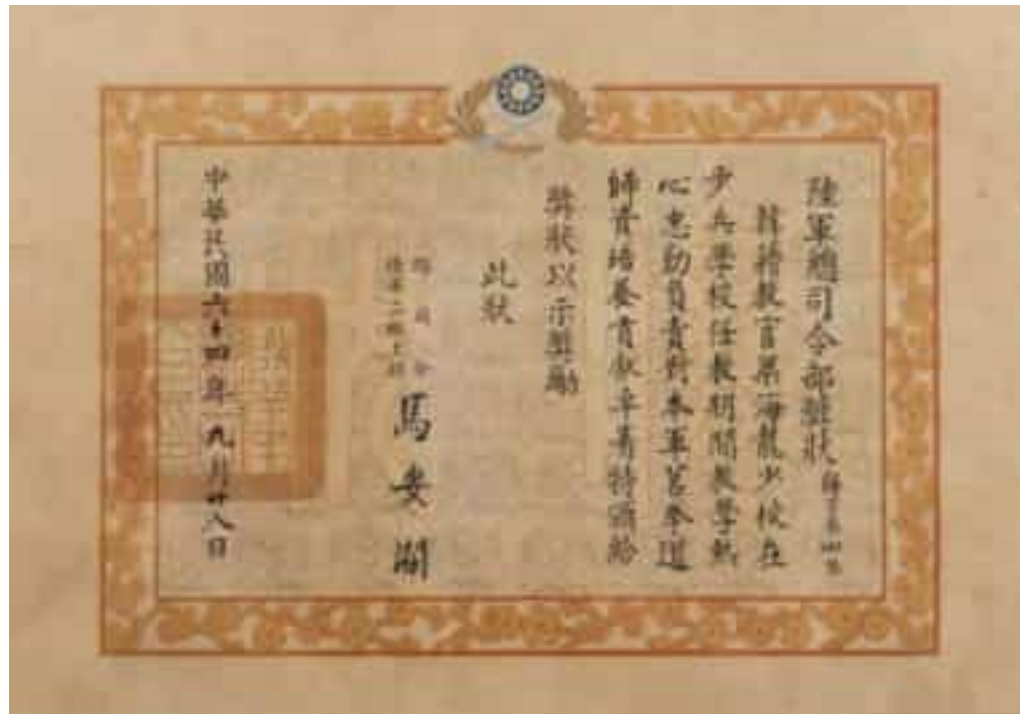 陸軍總司令部獎狀
韓籍教官梁海龍少校在
步兵學校任教期間教學熱
心忠勤負責對本軍莒拳道
師資培養貢獻卓著特頒給
獎狀以示獎勵
此狀
總司令
陸軍二級上將
馬安瀾
中華民國六十四年九月廿八日